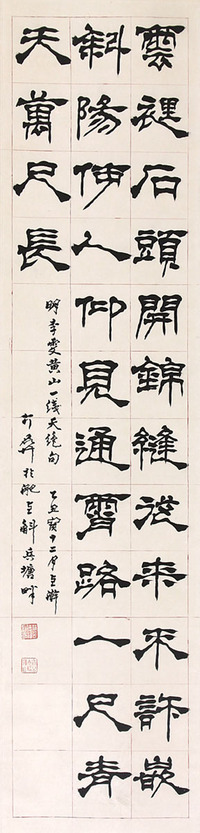 雲裡石頭開錦縫從来不許嵌
斜陽何人仰見通霄路一尺青
天萬尺長
明李雯黄山一线天绝句 乙丑十二月上澣
於肥上斛兵塘畔